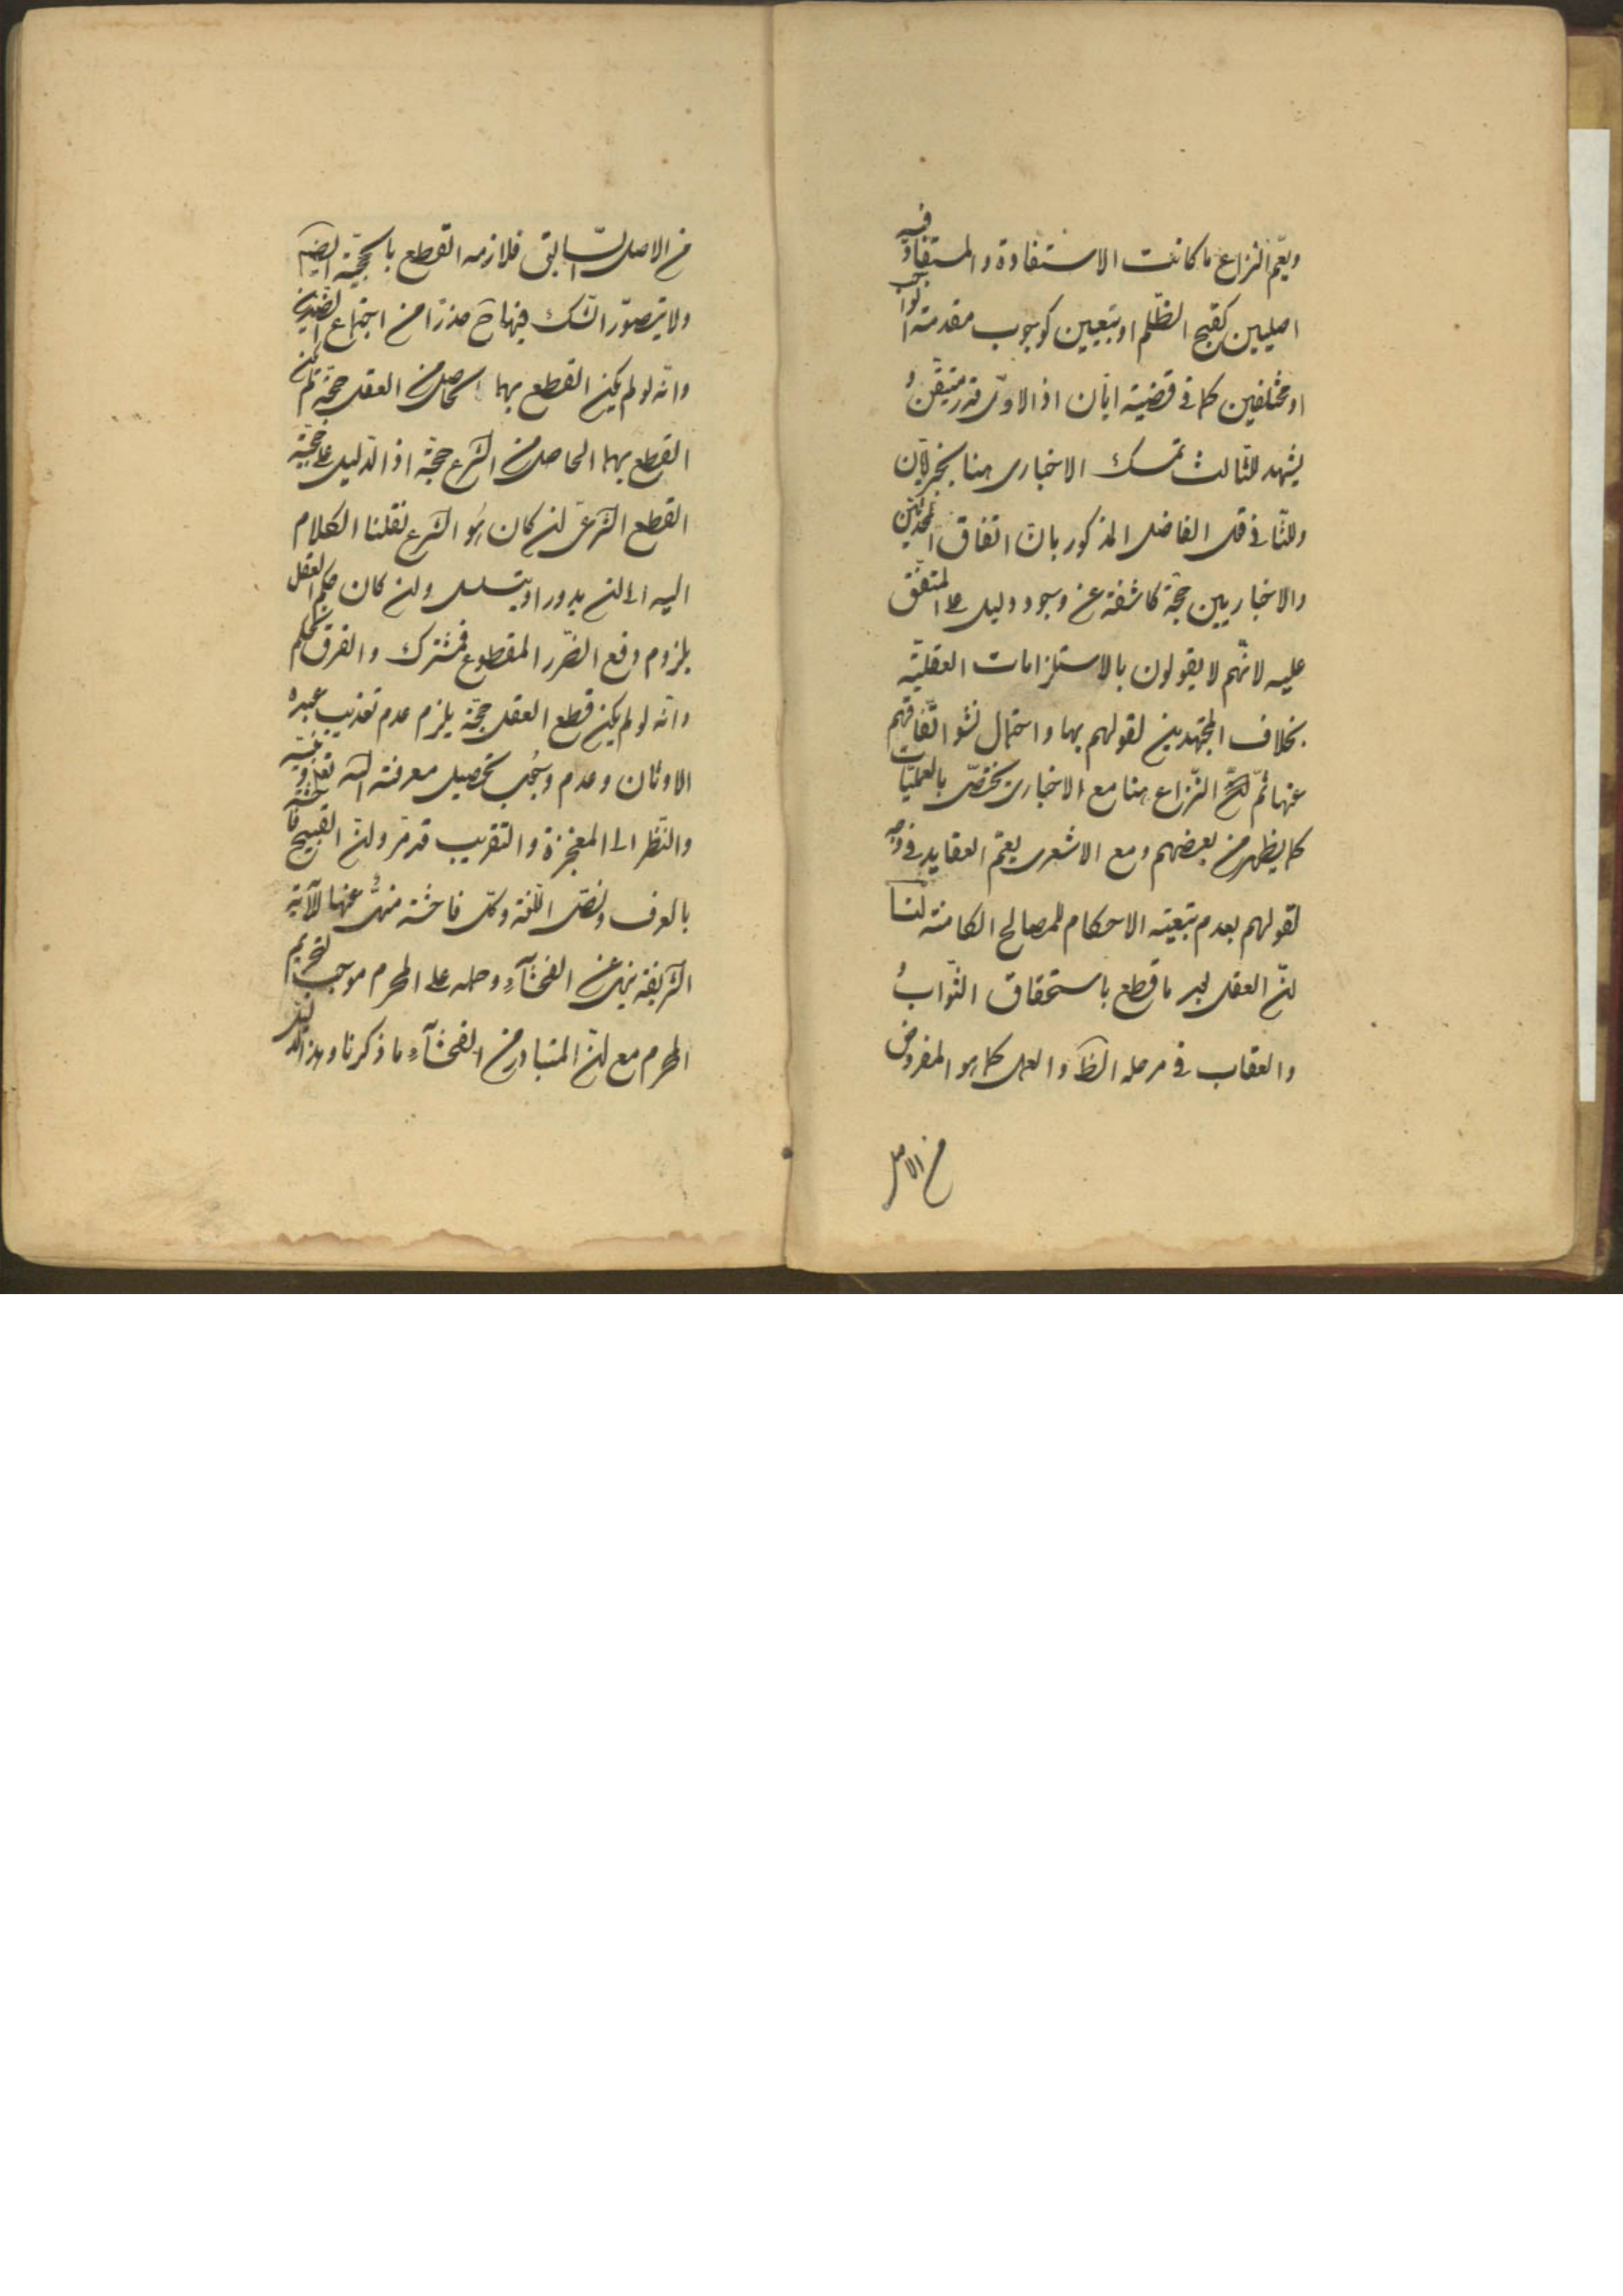 ويعم النزاع ما كانت الاستفادة والمستفاد فيه
اصليين كقبح الظلم او تبعيين كوجوب مقدمة الواجب
او مختلفين كما في قضية ابان اذ الاول قدر متيقن
يشهد للثالث تمسك الاخباري هنا بخبر ابان
وللثاني قول الفاضل المذكور بان اتفاق المحدثين
والاخباريين حجة كاشفة عن وجود دليل على المتفق
عليه لانهم لا يقولون بالاستلزامات العقلية
بخلاف المجتهدين لقولهم بها واحتمال نشو اتفاقهم
عنها ثم النزاع هنا مع الاخباري يختص بالعمليات
كما يظهر من بعضهم ومع الاشعري يعم العقايد في وجه
لقولهم بعدم تبعية الاحكام للمصالح الكامنة لنا
ان العقل بعد ما قطع باستحقاق الثواب
والعقاب في مرحله الظ والعمل كما هو المفروض
من الاصل
من الاصل السابق فلازمه القطع بالحجية ايضا
ولا يتصور الشك فيها ح حذرا من اجتماع الضدين
وانه لو لم يكن القطع بهما الحاصل من العقل حجة لم يكن
القطع بهما الحاصل من الشرع حجة اذ الدليل على حجية
القطع الشرعي ان كان هو الشرع نقلنا الكلام
اليه الى ان يدور او يتسلسل وان كان حكم العقل
بلزوم دفع الضرر المقطوع فمشترك والفرق تحكم
وانه لو لم يكن قطع العقل حجة يلزم عدم تعذيب عبدة
الاوثان وعدم وجوب تحصيل معرفة الله تعالى
والنظر الى المعجزة والتقريب قد مر وان القبيح فاحشة
بالعرف ونص اللغة وكل فاحشة منهي عنها للآية
الشريفة ينهى عن الفحشآء وحمله على المحرم موجب لتحريم
المحرم مع ان المتبادر من الفحشآء ما ذكرنا وهذا